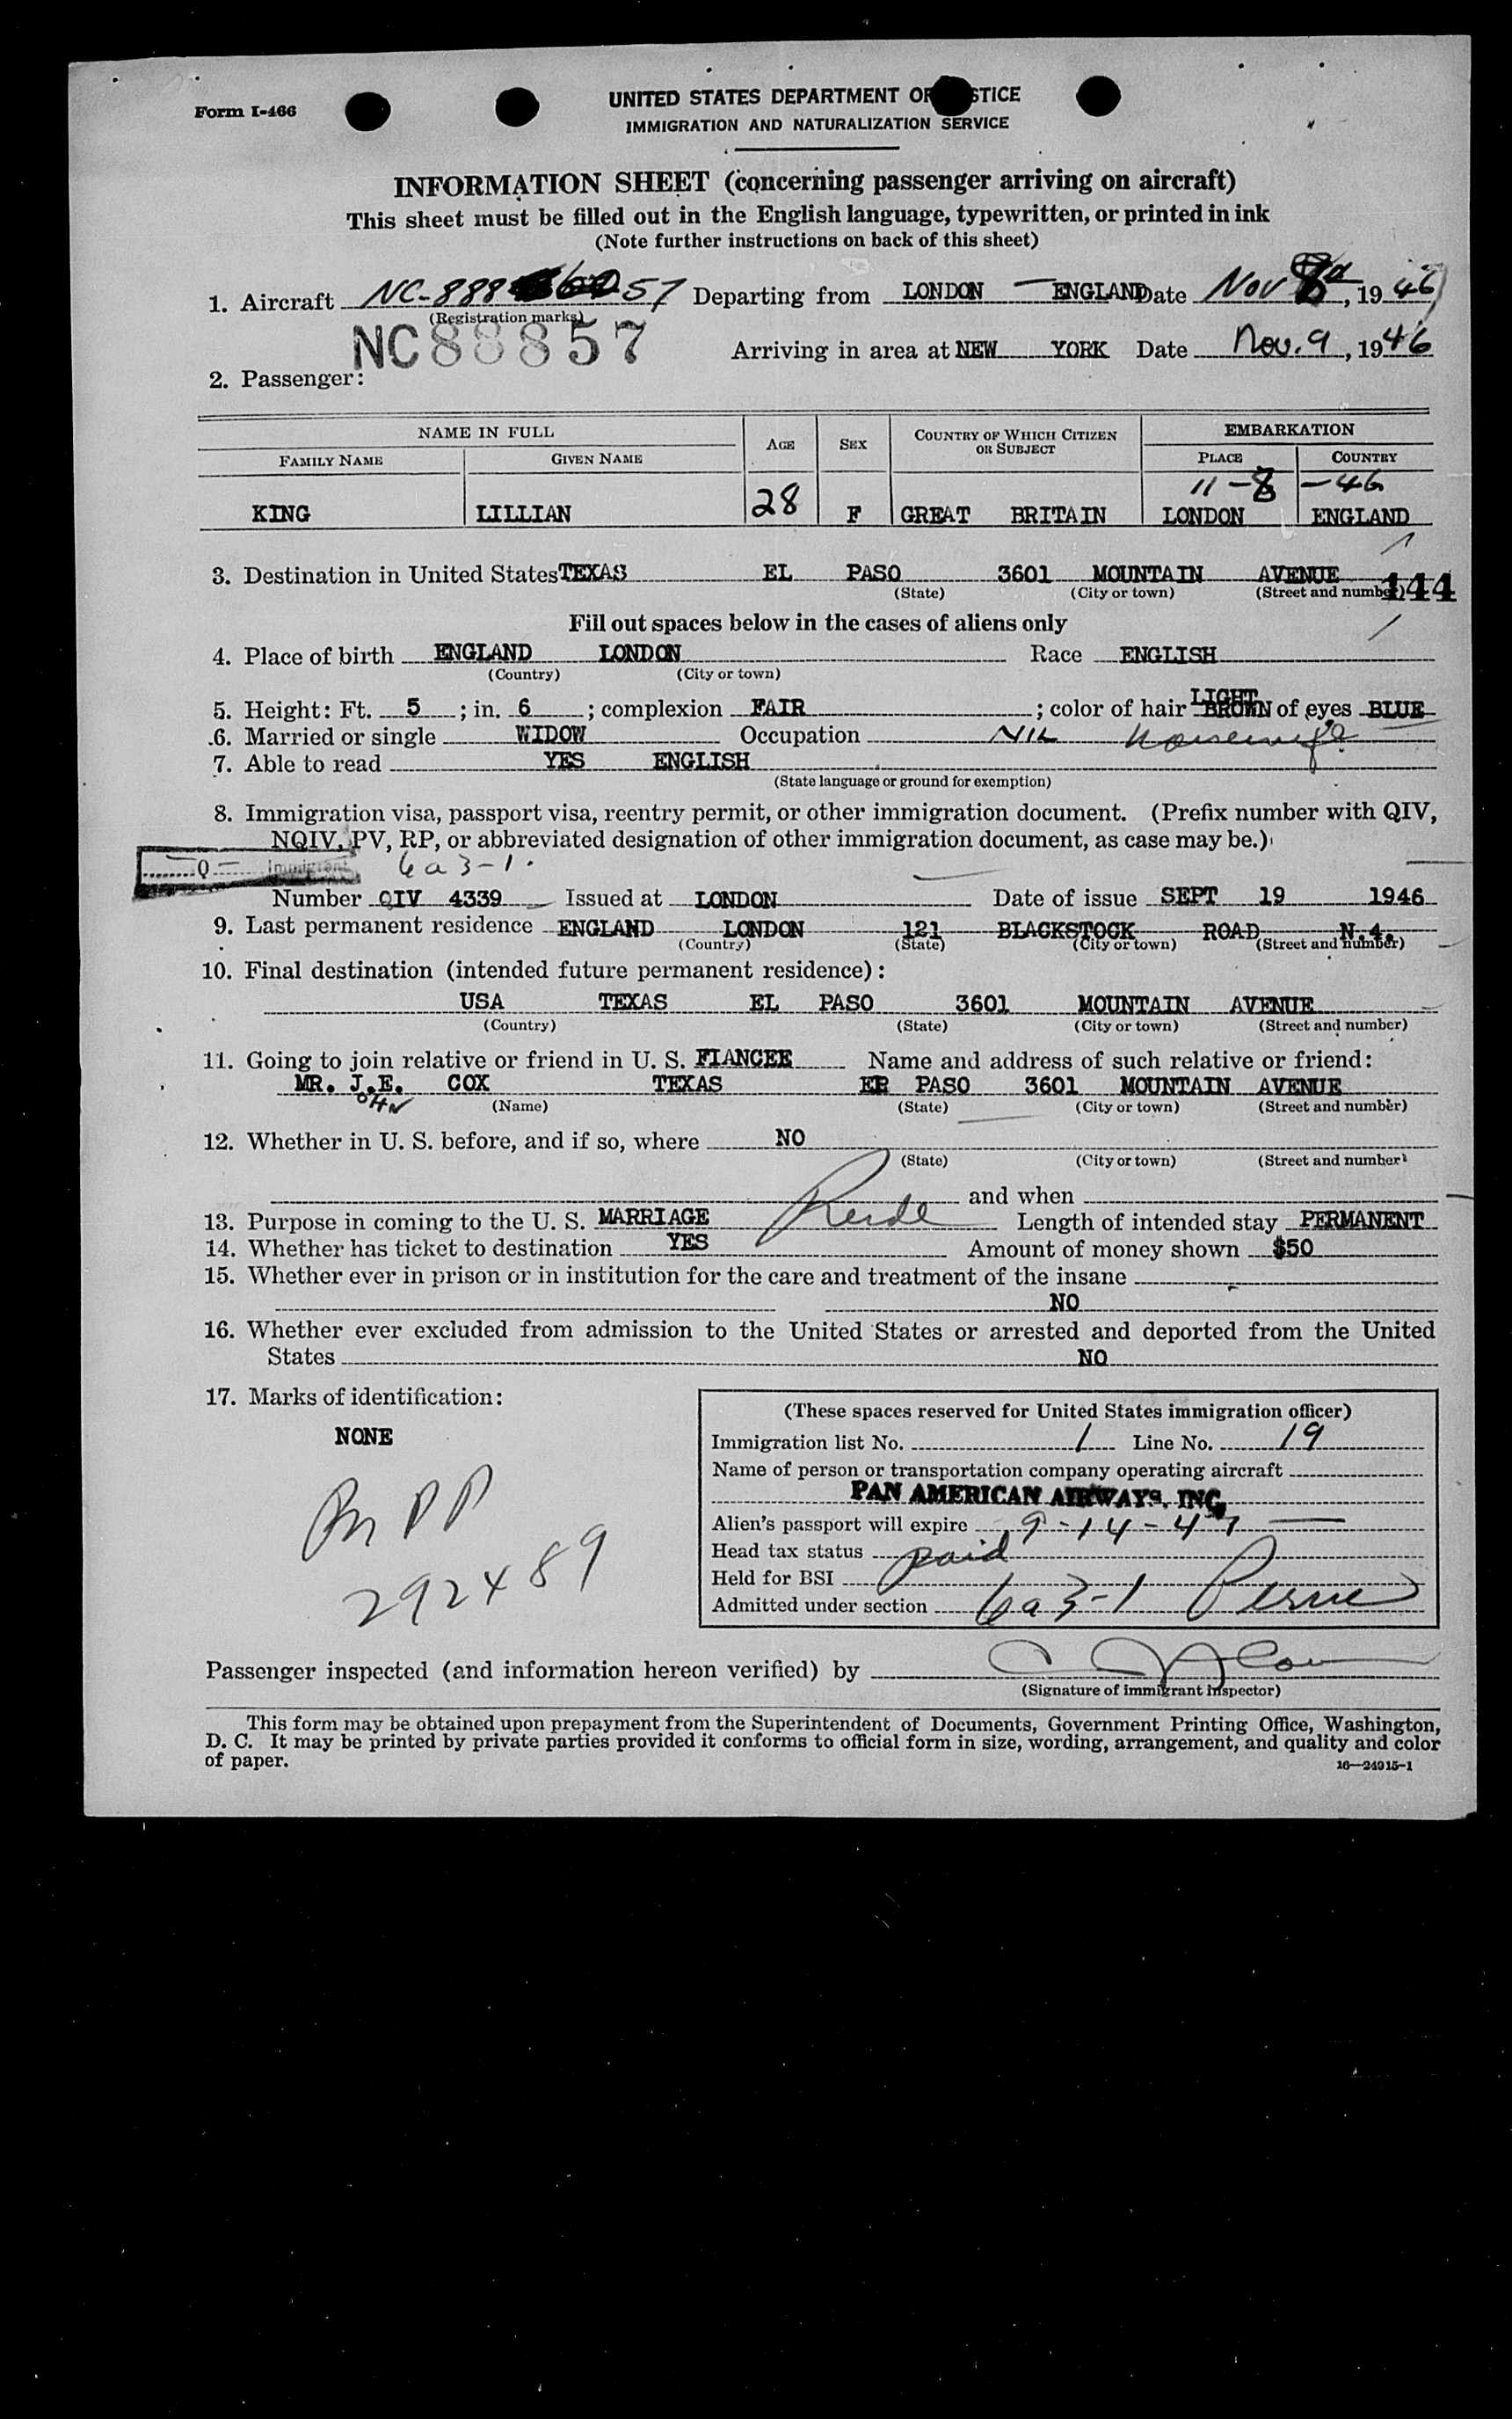 Form I-466
UNITED STATES DEPARTMENT OF JUSTICE
IMMIGRATION AND NATURALIZATION SERVICE
INFORMATION SHEET (concerning passenger arriving on aircraft)
This sheet must be filled out in the English language, typewritten, or printed in ink
(Note further instructions on back of this sheet)
1. Aircraft NC-888 57 Departing from LONDON — ENGLAND Date Nov 8, 1946
(Registration marks)
NC88857 Arriving in area at NEW YORK Date Nov. 9, 1946
2. Passenger:
NAME IN FULL AGE SEX COUNTRY OF WHICH CITIZEN OR SUBJECT EMBARKATION
FAMILY NAME GIVEN NAME PLACE COUNTRY
11-8-46
KING LILLIAN 28 F GREAT BRITAIN LONDON ENGLAND
3. Destination in United States TEXAS EL PASO 3601 MOUNTAIN AVENUE
(State) (City or town) (Street and number) 144
Fill out spaces below in the cases of aliens only
4. Place of birth ENGLAND LONDON Race ENGLISH
(Country) (City or town)
5. Height: Ft. 5 ; in. 6 ; complexion FAIR ; color of hair LIGHT BROWN of eyes BLUE
6. Married or single WIDOW Occupation NIL Housewife
7. Able to read YES ENGLISH
(State language or ground for exemption)
8. Immigration visa, passport visa, reentry permit, or other immigration document. (Prefix number with QIV,
NQIV, PV, RP, or abbreviated designation of other immigration document, as case may be.)
Q Immigrant 6a3-1.
Number QIV 4339 Issued at LONDON Date of issue SEPT 19 1946
9. Last permanent residence ENGLAND LONDON 121 BLACKSTOCK ROAD N.4.
(Country) (State) (City or town) (Street and number)
10. Final destination (intended future permanent residence):
USA TEXAS EL PASO 3601 MOUNTAIN AVENUE
(Country) (State) (City or town) (Street and number)
11. Going to join relative or friend in U. S. FIANCEE Name and address of such relative or friend:
MR. J.E. COX TEXAS EL PASO 3601 MOUNTAIN AVENUE
OHN (Name) (State) (City or town) (Street and number)
12. Whether in U. S. before, and if so, where NO
(State) (City or town) (Street and number)
and when
13. Purpose in coming to the U. S. MARRIAGE Reside Length of intended stay PERMANENT
14. Whether has ticket to destination YES Amount of money shown $50
15. Whether ever in prison or in institution for the care and treatment of the insane
NO
16. Whether ever excluded from admission to the United States or arrested and deported from the United
States NO
17. Marks of identification:
NONE
Br PP
292489
(These spaces reserved for United States immigration officer)
Immigration list No. 1 Line No. 19
Name of person or transportation company operating aircraft
PAN AMERICAN AIRWAYS, INC.
Alien's passport will expire 9-14-47
Head tax status paid
Held for BSI
Admitted under section 6a3-1
Passenger inspected (and information hereon verified) by
(Signature of immigrant inspector)
This form may be obtained upon prepayment from the Superintendent of Documents, Government Printing Office, Washington,
D. C. It may be printed by private parties provided it conforms to official form in size, wording, arrangement, and quality and color
of paper.
16—24915-1